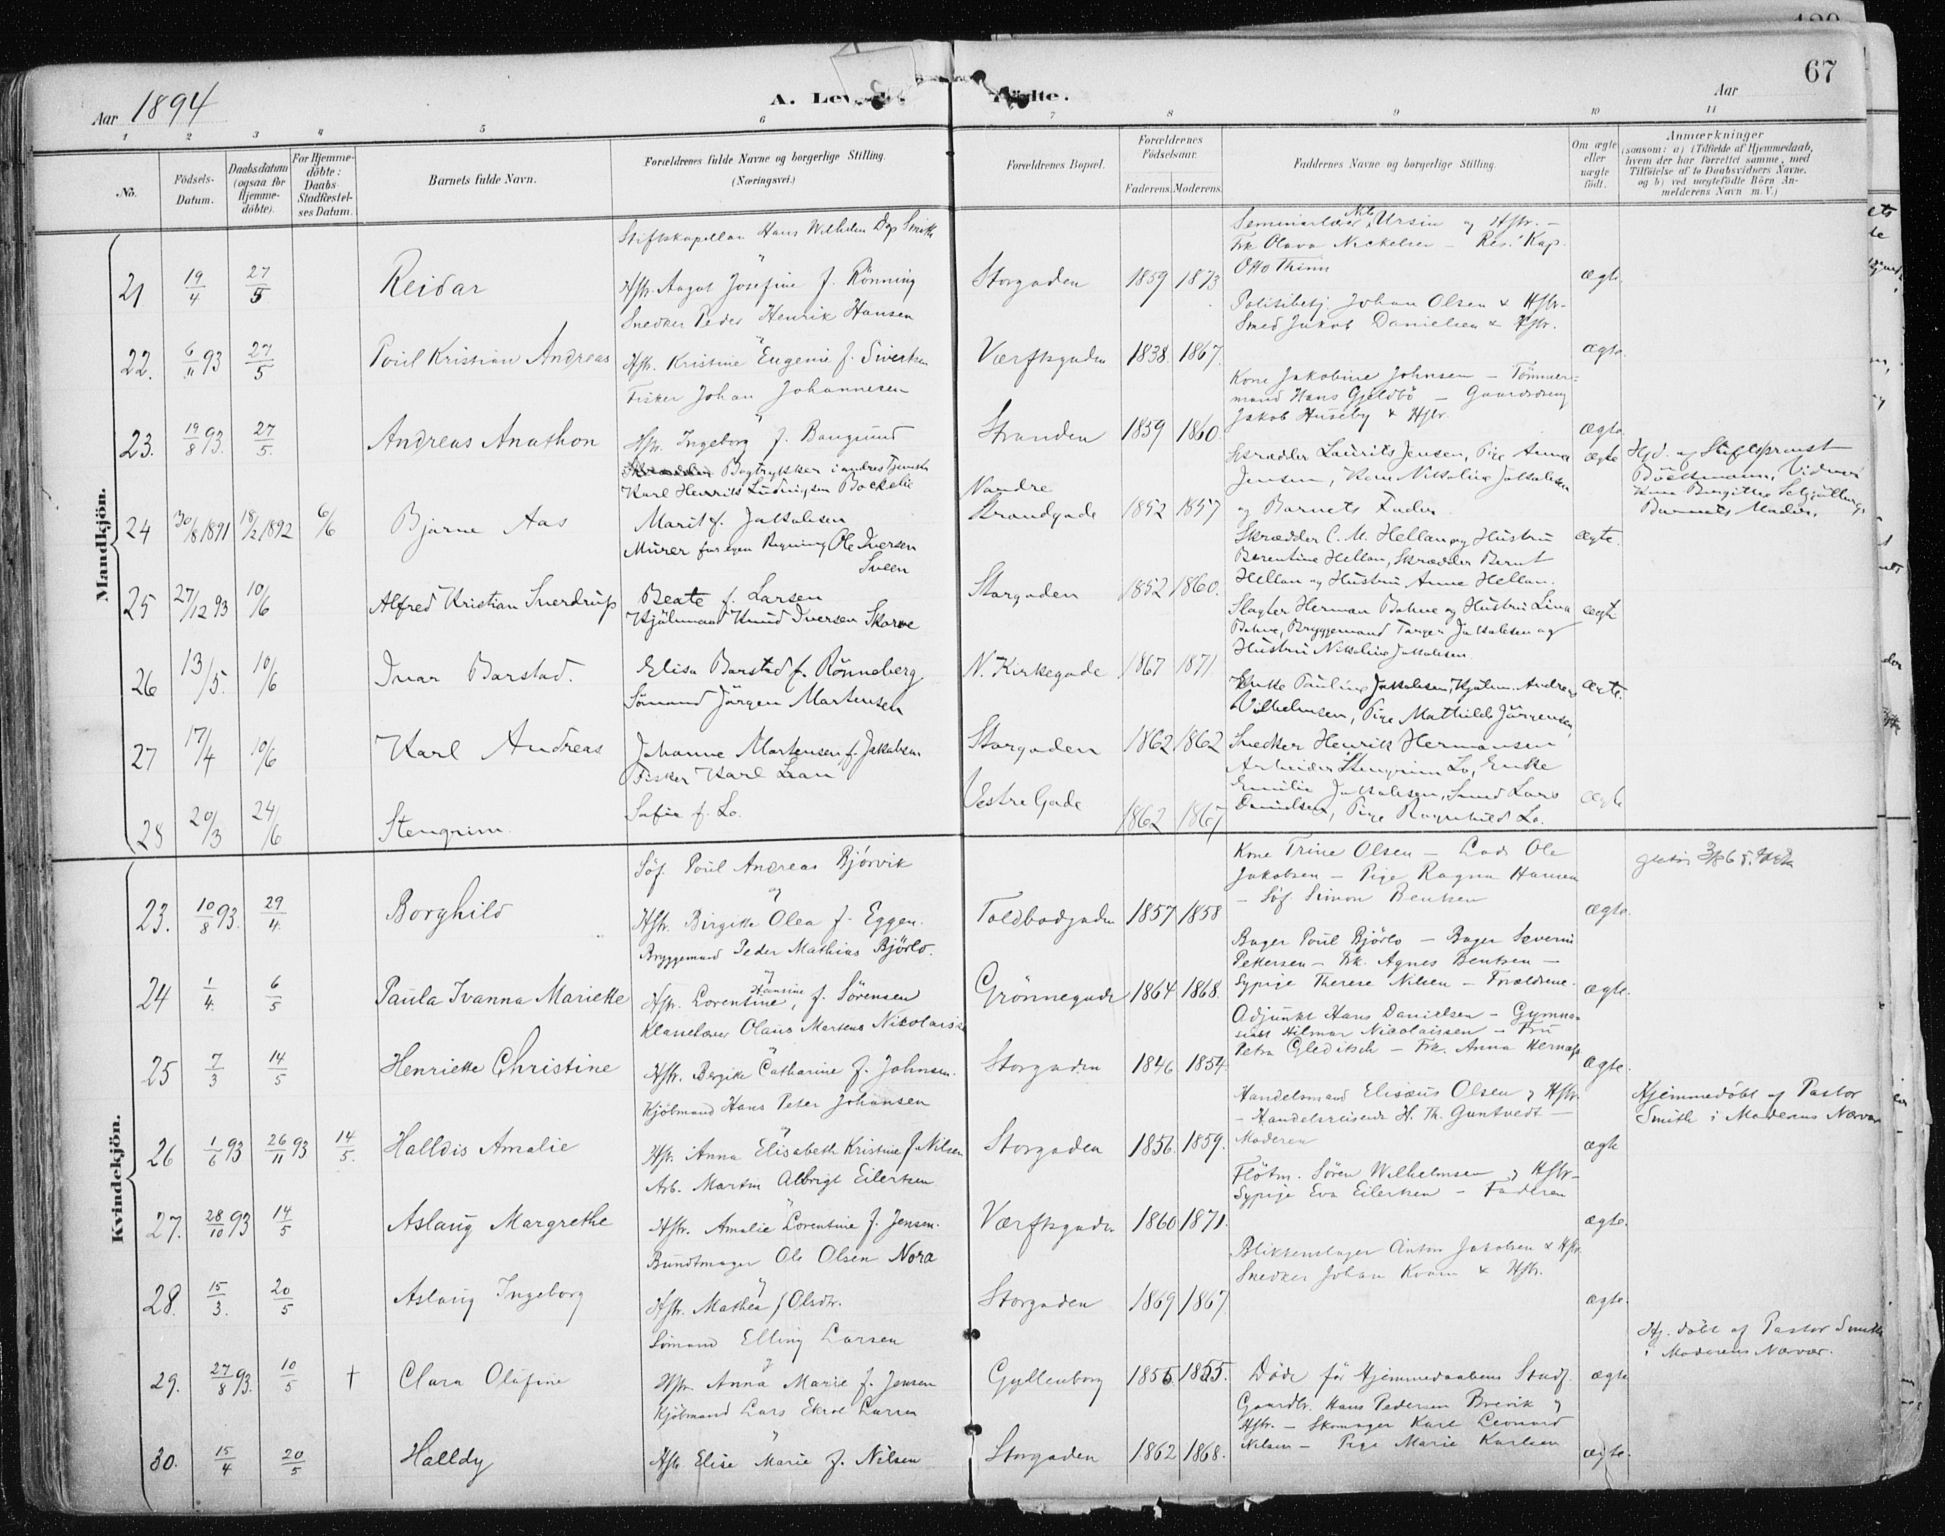 67
Aar 1894
A. Lev
ödte.
Aar
1 2 3 4 5 6 7 8 9 10 11
No.
Födsels-Datum.
Daabsdatum (ogsaa for Hjemme-döbte).
For Hjemme-döbte: Daabs-Stadfæstel-ses Datum.
Barnets fulde Navn.
Forældrenes fulde Navne og borgerlige Stilling. (Næringsvei.)
Forældrenes Bopæl.
Forældrenes Födselsaar.
Faderens. Moderens.
Faddernes Navne og borgerlige Stilling.
Om ægte eller uægte födt.
Anmærkninger (saasom: a) i Tilfælde af Hjemmedaab, hvem der har forrettet samme, med Tilföielse af to Daabsvidners Navne, og b) ved uægtefödte Börn An-melderens Navn m. V.)
Mandkjön.
Stiftskapellan Hans Wilhelm Dop Smith
Seminarlær. Nils Ursin og Hstr. –
Frk Olava Nickelsen – Res. Kap.
Otto Thinn
21 19/4 27/5 Reidar
Hstr. Aagot Josefine f. Rönning
Storgaden 1859 1873 ægte.
Snedker Peder Henrik Hansen
Politibetj. Johan Olsen & Hstr–
Smed Jakob Danielsen & Hstr.
22. 6/11 93 27/5 Poul Kristian Andreas
Hstr. Kristine Eugenie f. Sivertsen
Værftsgaden 1838. 1867. ægte.
Fisker Johan Johannesen
Kone Jakobine Johnsen – Tömmer-
mand Hans Gjeldbö – Gaardsdreng
Jakob Huseby & Hstr.
23. 19/8 93. 27/5. Andreas Anathon
Hstr. Ingeborg f. Bangsund
Stranden 1859 1860 ægte.
Bogtrykker i andres Tjeneste
Karl Henrik Ludvigsen Bockelie
Skrædder Laurits Jensen, Pige Anna
Jensen, Kone Nikoline Jakobsen
og Barnets Fader
24 30/8 1891 18/2 1892 6/6 Bjarne Aas
Marit f. Jakobsen
Nordre Strandgade 1852 1857 ægte
Hjd. af Stiftsprovst
Böckmann, Vidner
Kone Birgitte Schjölberg,
Barnets Moder.
Murer for egen Regning Ole Iversen Sveen
Skrædder C. M. Hellan og Hustru
Berentine Hellan, Skrædder Bernt
Hellan og Hustru Anne Hellan.
25 27/12 93 10/6 Alfred Kristian Sverdrup
Beate f. Larsen
Storgaden 1852 1860. ægte.
Kjölmand Knud Iversen Skarve
Slagter Herman Bahne og Hustru Lina
Bahne, Bryggemand Torger Jakobsen og
Hustru Nikoline Jakobsen
26 13/5. 10/6 Ivar Barstad.
Elisa Barstad f. Rönneberg
N. Kirkegade 1867 1871 ægte
Sömand Jörgen Martensen
Enke Pauline Jakobsen, Kjölm. Andreas
Vilhelmsen, Pige Mathilde Jörgensen,
Snedker Henrik Hermansen
27 17/4 10/6 Karl Andreas
Johanne Martensen f. Jakobsen
Storgaden 1862 1862 ægte.
Fisker Karl Lian
Arbeider Stengrim Lo, Enke
Emilie Jakobsen, Smed Lars
Danielsen, Pige Ragnhild Lo.
28 20/3 24/6 Stengrim.
Sofie f. Lo.
Vestre Gade 1862 1867 ægte
Kvindekjön.
Söf. Poul Andreas Bjórvik
og
Kone Trine Olsen – Lods Ole
Jakobsen – Pige Ragna Hansen
– Söf. Simon Bentsen
23. 10/8 93. 29/4. Borghild
Hstr. Birgitte Olea f. Eggen.
Toldbodgaden 1857 1858 ægte.
Bryggemand Peder Mathias Bjórlo.
Bager Poul Bjórlo – Bager Severin
Pettersen – Frk. Agnes Bentsen –
Sypige Therese Nilsen – Forældrene.
24 1/4. 6/5 Paula Ivanna Mariette
Hstr. Lorentine Hansine, f. Sörensen
Grönnegade 1864 1868. ægte.
Klasselærer Olaus Martens Nicolaissen
Adjunkt Hans Danielsen – Gymna-
siast Hilmar Nicolaissen – Fru
Petra Gleditsch – Frk. Anna Hernæs
25 7/3 14/5 Henriette Christine
Hstr. Bergite Catharine f. Johnsen.
Storgaden 1846 1854. ægte.
Kjöbmand Hans Peter Johansen
Handelsmand Elisæus Olsen og Hstr.
– Handelsreisende H. Th. Guntvedt –
Moderen
26 1/6 93 26/11 93 14/5. Halldis Amalie
Hstr. Anna Elisabeth Kristine f Nilsen
Storgaden 1856. 1859. ægte
Hjemmedöbt af Pastor
Smith i Moderens Nærvær
Arb. Martin Albrigt Eilertsen
Flötm. Sören Wilhelmsen og Hstr–
Sypige Eva Eilertsen – Faderen
27. 28/10 93 14/5 Aslaug Margrethe
Hstr. Amalie Lorentine f. Jensen.
Værftsgaden 1860 1871. ægte.
Bundtmager Ole Olsen Nora
Blikkenslager Anton Jakobsen & Hstr.
Snedker Johan Kvam & Hstr.
28. 15/3. 20/5 Aslaug Ingeborg
Hstr. Mathea f Olsdtr.
Storgaden 1869 1867 ægte.
Sömand Elling Larsen
Hj. döbt af Pastor Smith
i Moderens Nærvær.
29. 27/8 93. 10/5 † Clara Olufine
Hstr. Anna Marie f. Jensen
Gyllenborg 1855 1855. Döde för Hjemmedaabens Stadf. ægte
Kjöbmand Lars Ekrol Larsen
Gaardbr. Hans Pedersen Breivik og
Hstr. – Skomager Karl Leonard
Nilsen – Pige Marie Karlsen
30. 15/4 20/5 Halldy
Hstr. Elise Marie f. Nilsen
Storgaden 1862 1868. ægte.